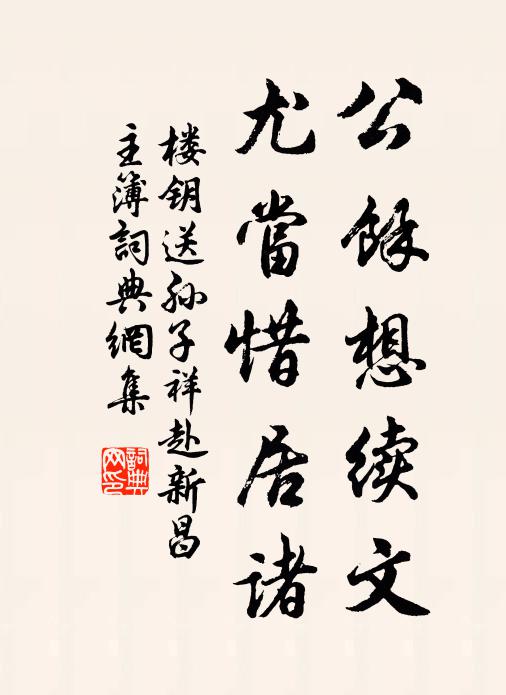 公餘想续文
尤當惜居诸
楼钥送孙子祥赴新昌
主簿詞典網集
詞典
网印